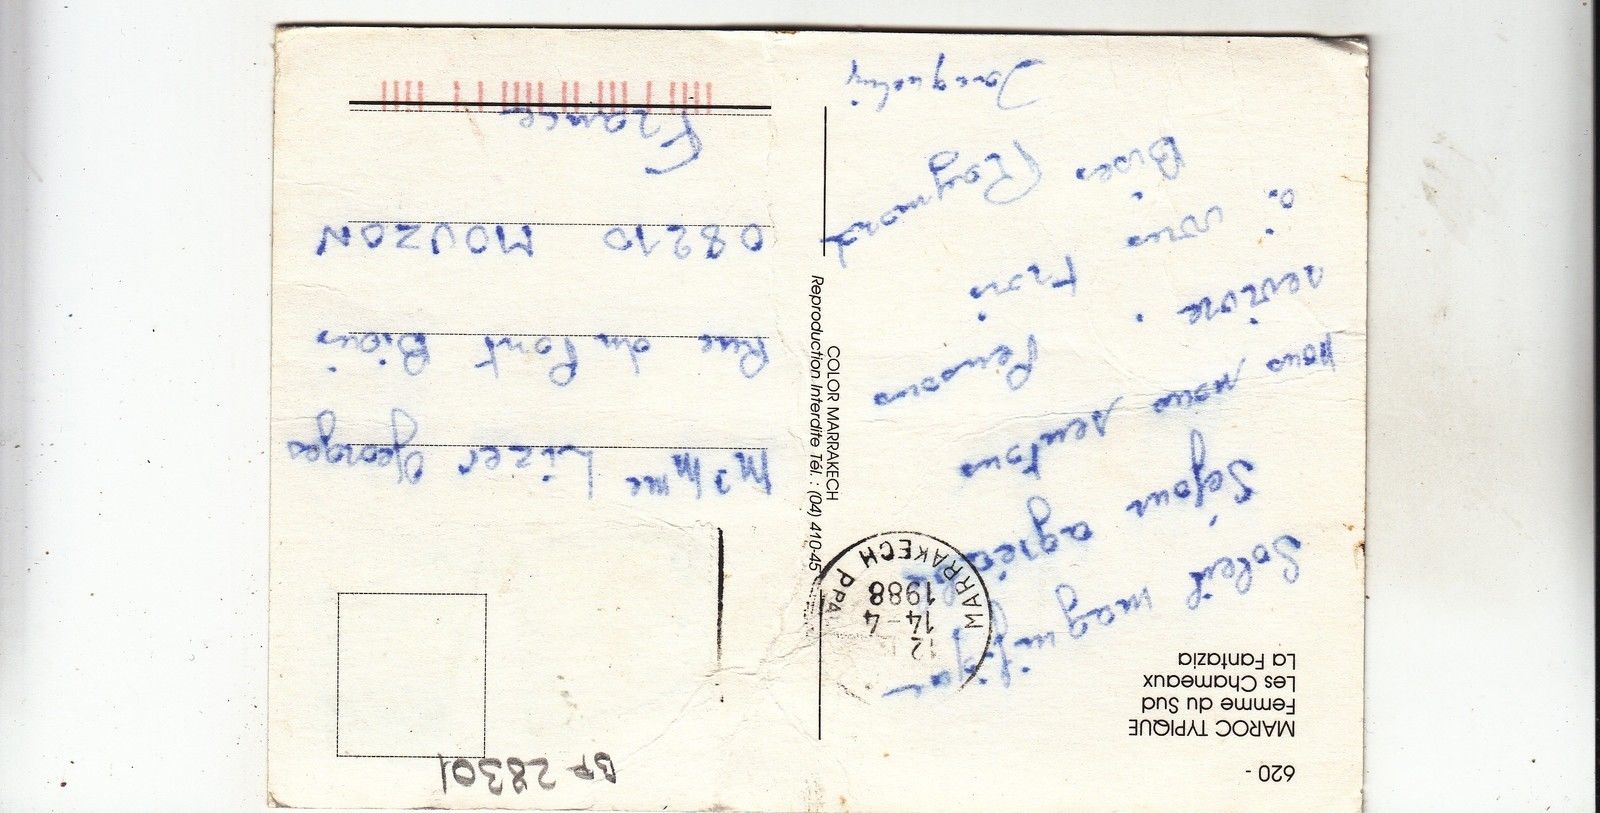 620 -
MAROC TYPIQUE
Femme du Sud
Les Chameaux
La Fantazia
Soleil magnifique
Séjour agréable
nous nous sentons
revivre. Pensons
à vous. Trois
Bises Raymond
Jacquelin
MARRAKECH PPAL
12
14-4
1988
COLOR MARRAKECH
Reproduction Interdite Tél. : (04) 410-45
BF 28301
Mr Mme Lizer Georges
Rue du Pont Bieus
08210 MOUZON
France